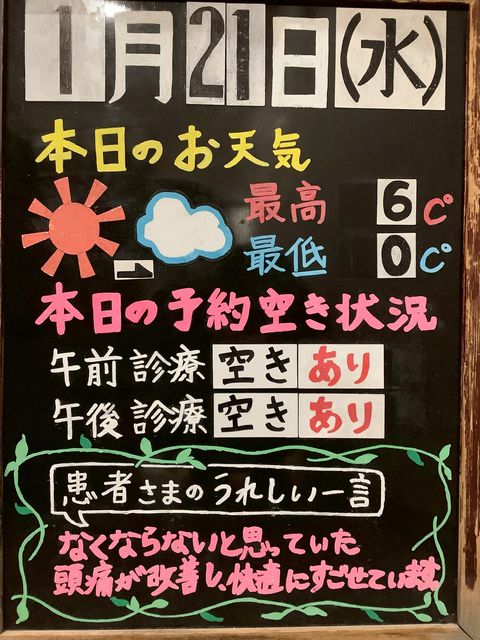 1月21日(水)
本日のお天気
最高 6℃
最低 0℃
本日の予約空き状況
午前診療 空き あり
午後診療 空き あり
患者さまのうれしい一言
なくならないと思っていた
頭痛が改善し、快適にすごせています